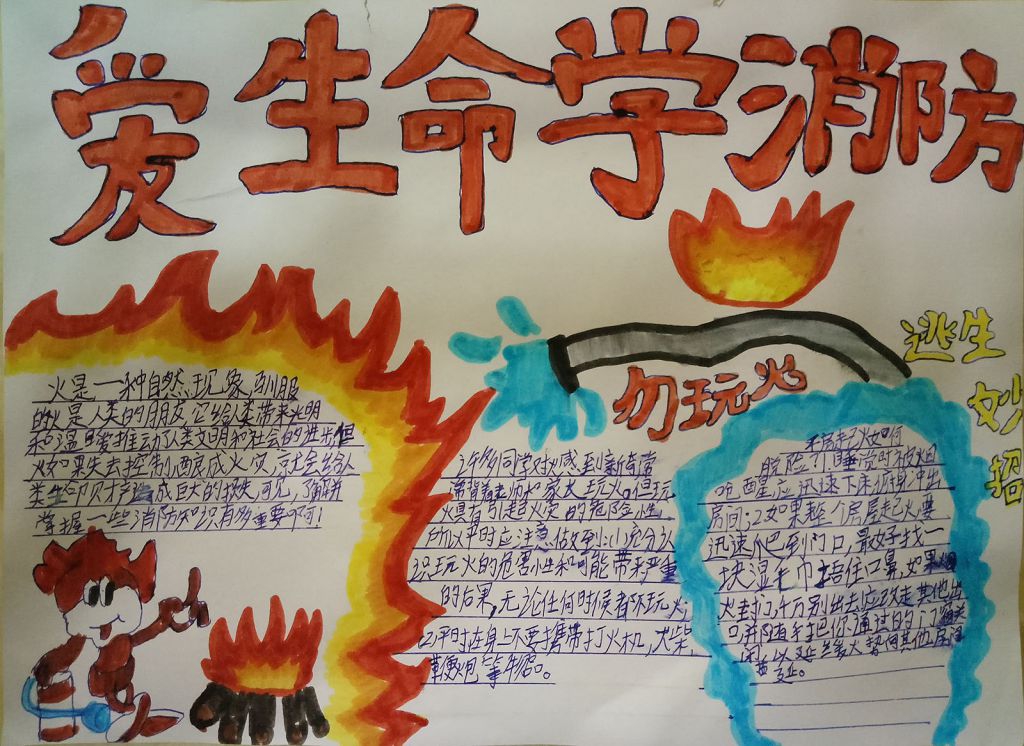 爱生命学消防
火是一种自然现象,驯服
的火是人类的朋友,它给人类带来光明
和温暖,推动了人类文明和社会的进步,但
火如果失去控制,酿成火灾,就会给人
类生命财产造成巨大的损失,可见,了解并
掌握一些消防知识有多重要啊!
勿玩火
许多同学对火感到新奇常
常背着老师和家长玩火。但玩
火具有引起火灾的危险性,
所以平时应注意做到:(1)充分认
识玩火的危害性和可能带来严重
的后果,无论任何时候都不玩火;
(2)平时在身上不要携带打火机,火柴,
鞭炮等物品。
逃生
妙
招
房屋起火如何
脱险:1睡觉时被烟
呛醒应迅速下床俯身冲出
房间;2如果整个房屋起火要
迅速爬到门口,最好找一
块湿毛巾捂住口鼻,如果烟
火封门,千万别出去应改走其他出
口并随手把你通过的门窗关
闭,以延缓火势向其他房间
蔓延。